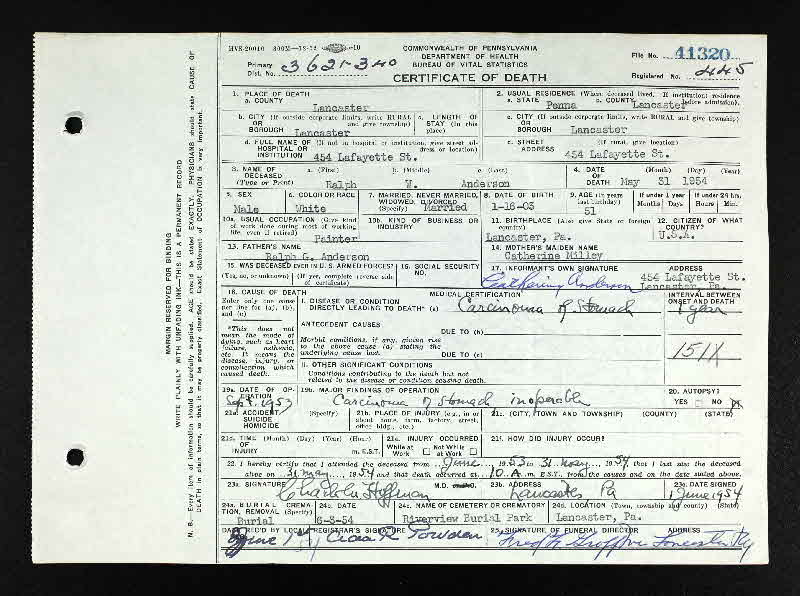 HVS-20010
COMMONWEALTH OF PENNSYLVANIA
DEPARTMENT OF HEALTH
BUREAU OF VITAL STATISTICS
CERTIFICATE OF DEATH
Primary Dist. No. 3621-340
File No. 41320
Registered No. 445
1. PLACE OF DEATH
a. COUNTY
Lancaster
2. USUAL RESIDENCE (Where deceased lived. If institution: residence before admission).
a. STATE Penna b. COUNTY Lancaster
b. CITY (If outside corporate limits, write RURAL and give township)
OR
BOROUGH Lancaster
c. LENGTH OF STAY (in this place)
c. CITY (If outside corporate limits, write RURAL and give township)
OR
BOROUGH Lancaster
d. FULL NAME OF (If not in hospital or institution, give street address or location)
HOSPITAL OR
INSTITUTION 454 Lafayette St.
d. STREET (If rural, give location)
ADDRESS 454 Lafayette St.
3. NAME OF DECEASED (Type or Print)
a. (First) b. (Middle) c. (Last)
Ralph W. Anderson
4. DATE OF DEATH (Month) (Day) (Year)
May 31 1954
5. SEX
Male
6. COLOR OR RACE
White
7. MARRIED, NEVER MARRIED, WIDOWED, DIVORCED (Specify)
Married
8. DATE OF BIRTH
1-16-03
9. AGE (In years last birthday)
51
If under 1 year Months Days
If under 24 hrs. Hours Min.
10a. USUAL OCCUPATION (Give kind of work done during most of working life, even if retired)
Painter
10b. KIND OF BUSINESS OR INDUSTRY
11. BIRTHPLACE (Also give State or foreign country)
Lancaster, Pa.
12. CITIZEN OF WHAT COUNTRY?
U.S.A.
13. FATHER'S NAME
Ralph G. Anderson
14. MOTHER'S MAIDEN NAME
Catherine Milley
15. WAS DECEASED EVER IN U. S. ARMED FORCES?
(Yes, no, or unknown) (If yes, complete reverse side of certificate)
16. SOCIAL SECURITY NO.
17. INFORMANT'S OWN SIGNATURE ADDRESS
Anderson 454 Lafayette St.
Lancaster, Pa.
18. CAUSE OF DEATH
Enter only one cause per line for (a), (b), and (c)
MEDICAL CERTIFICATION
INTERVAL BETWEEN ONSET AND DEATH
I. DISEASE OR CONDITION
DIRECTLY LEADING TO DEATH* (a) Carcinoma of Stomach 1 year
*This does not mean the mode of dying, such as heart failure, asthenia, etc. It means the disease, injury, or complication which caused death.
ANTECEDENT CAUSES
DUE TO (b)
Morbid conditions, if any, giving rise to the above cause (a) stating the underlying cause last.
DUE TO (c)
151X
II. OTHER SIGNIFICANT CONDITIONS
Conditions contributing to the death but not related to the disease or condition causing death.
19a. DATE OF OPERATION
1953
19b. MAJOR FINDINGS OF OPERATION
Carcinoma of Stomach inoperable
20. AUTOPSY?
YES NO
21a. ACCIDENT SUICIDE HOMICIDE (Specify)
21b. PLACE OF INJURY (e.g., in or about home, farm, factory, street, office bldg., etc.)
21c. (CITY, TOWN AND TOWNSHIP) (COUNTY) (STATE)
21d. TIME OF INJURY (Month) (Day) (Year) (Hour)
m. E.S.T.
21e. INJURY OCCURRED
While at Work Not While at Work
21f. HOW DID INJURY OCCUR?
22. I hereby certify that I attended the deceased from June, 1953 to 31 May, 1954, that I last saw the deceased
alive on 31 May, 1954 and that death occurred at 10 A. m. E.S.T., from the causes and on the date stated above.
23a. SIGNATURE M.D.
Hoffman
23b. ADDRESS
Lancaster Pa
23c. DATE SIGNED
1 June 1954
24a. BURIAL CREMATION, REMOVAL (Specify)
Burial
24b. DATE
6-3-54
24c. NAME OF CEMETERY OR CREMATORY
Riverview Burial Park
24d. LOCATION (Town, township and county) (State)
Lancaster, Pa.
REC'D BY LOCAL REGISTRAR'S SIGNATURE
June 1
25. SIGNATURE OF FUNERAL DIRECTOR ADDRESS
Fred F. Groff
MARGIN RESERVED FOR BINDING
WRITE PLAINLY WITH UNFADING INK—THIS IS A PERMANENT RECORD
N. B. Every item of information should be carefully supplied. AGE should be stated EXACTLY. PHYSICIANS should state CAUSE OF
DEATH in plain terms, so that it may be properly classified. Exact Statement of OCCUPATION is very important.